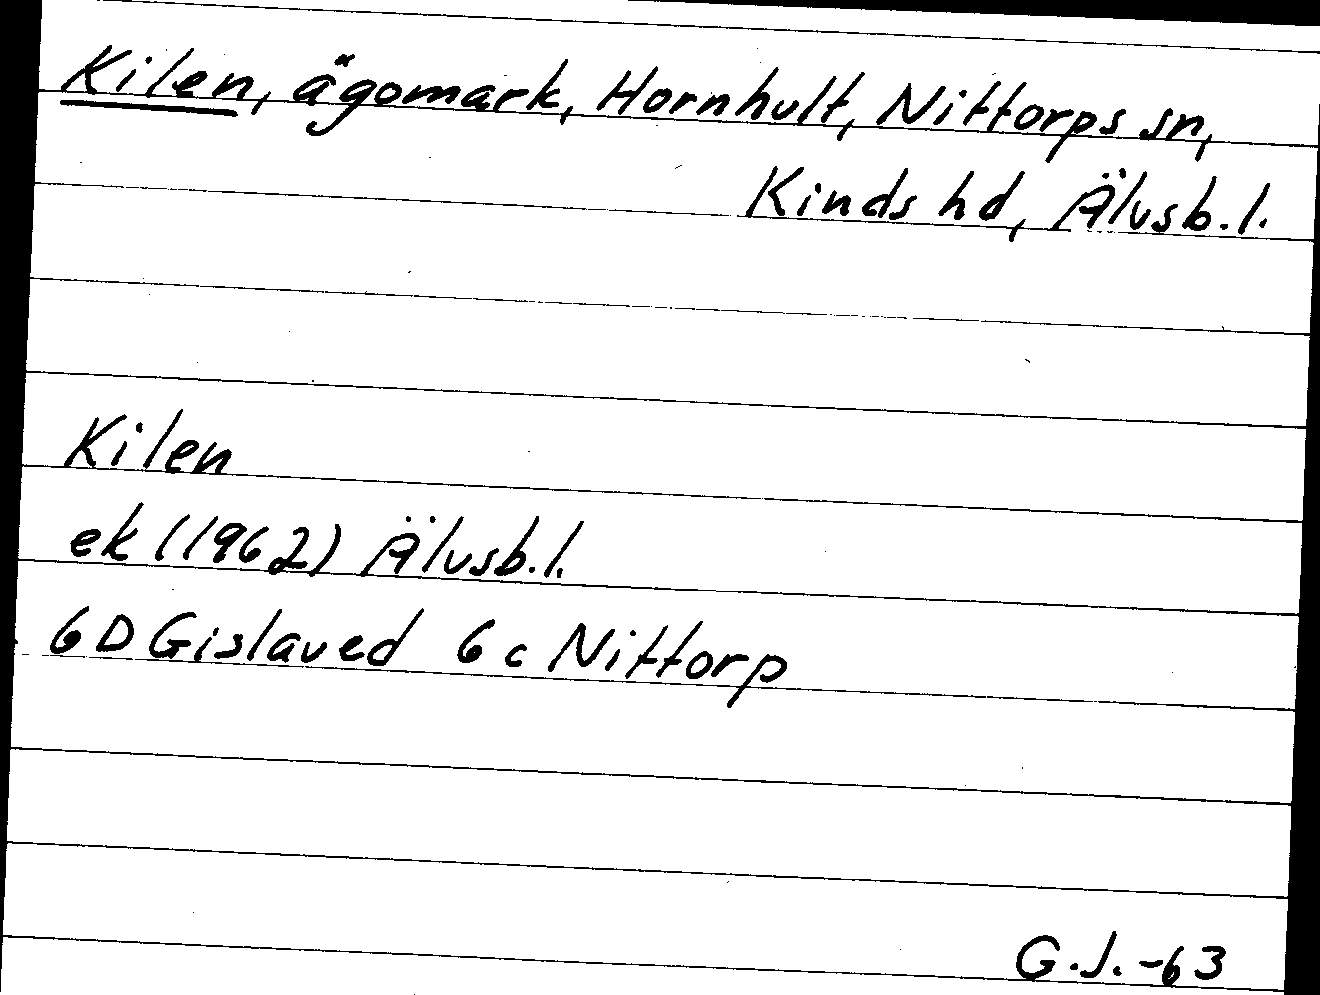 Kilen, ägomark, Hornhult, Nittorps sn,
Kinds hd, Älvsb.l.
Kilen
ek (1962) Älvsb.l.
6D Gislaved 6c Nittorp
G.J.-63